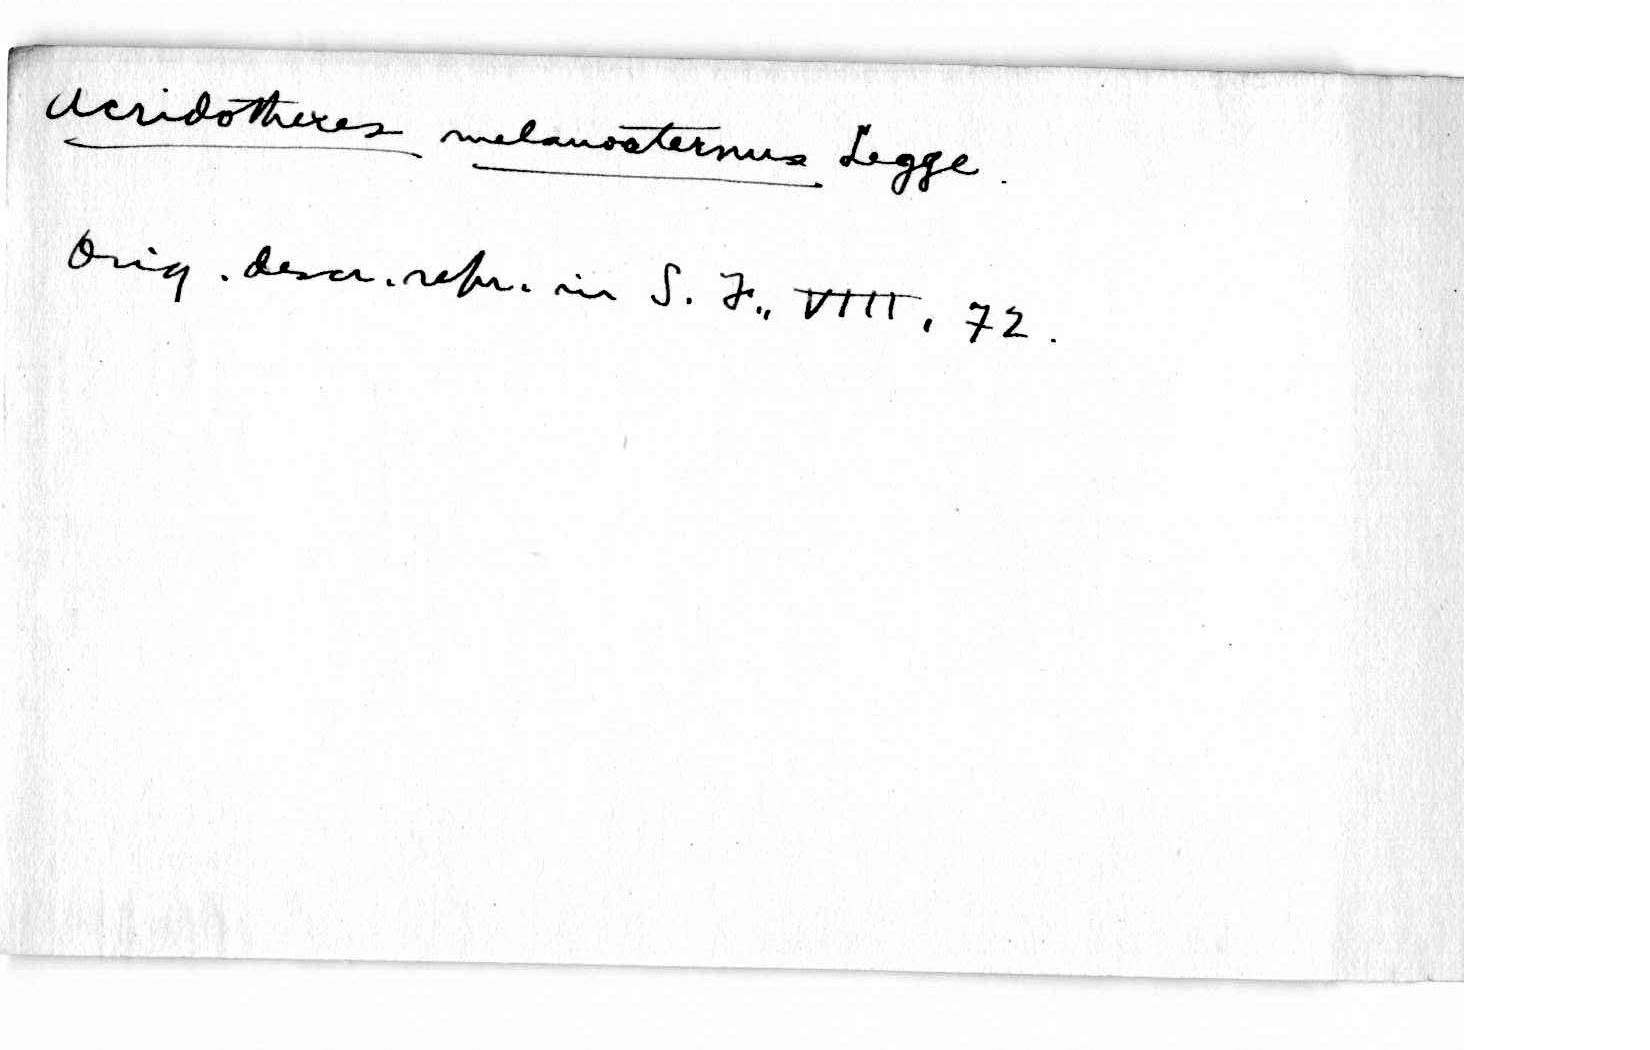 Acridotheres melanosternus Legge.
Orig. descr. repr. in S. F., VIII, 72.